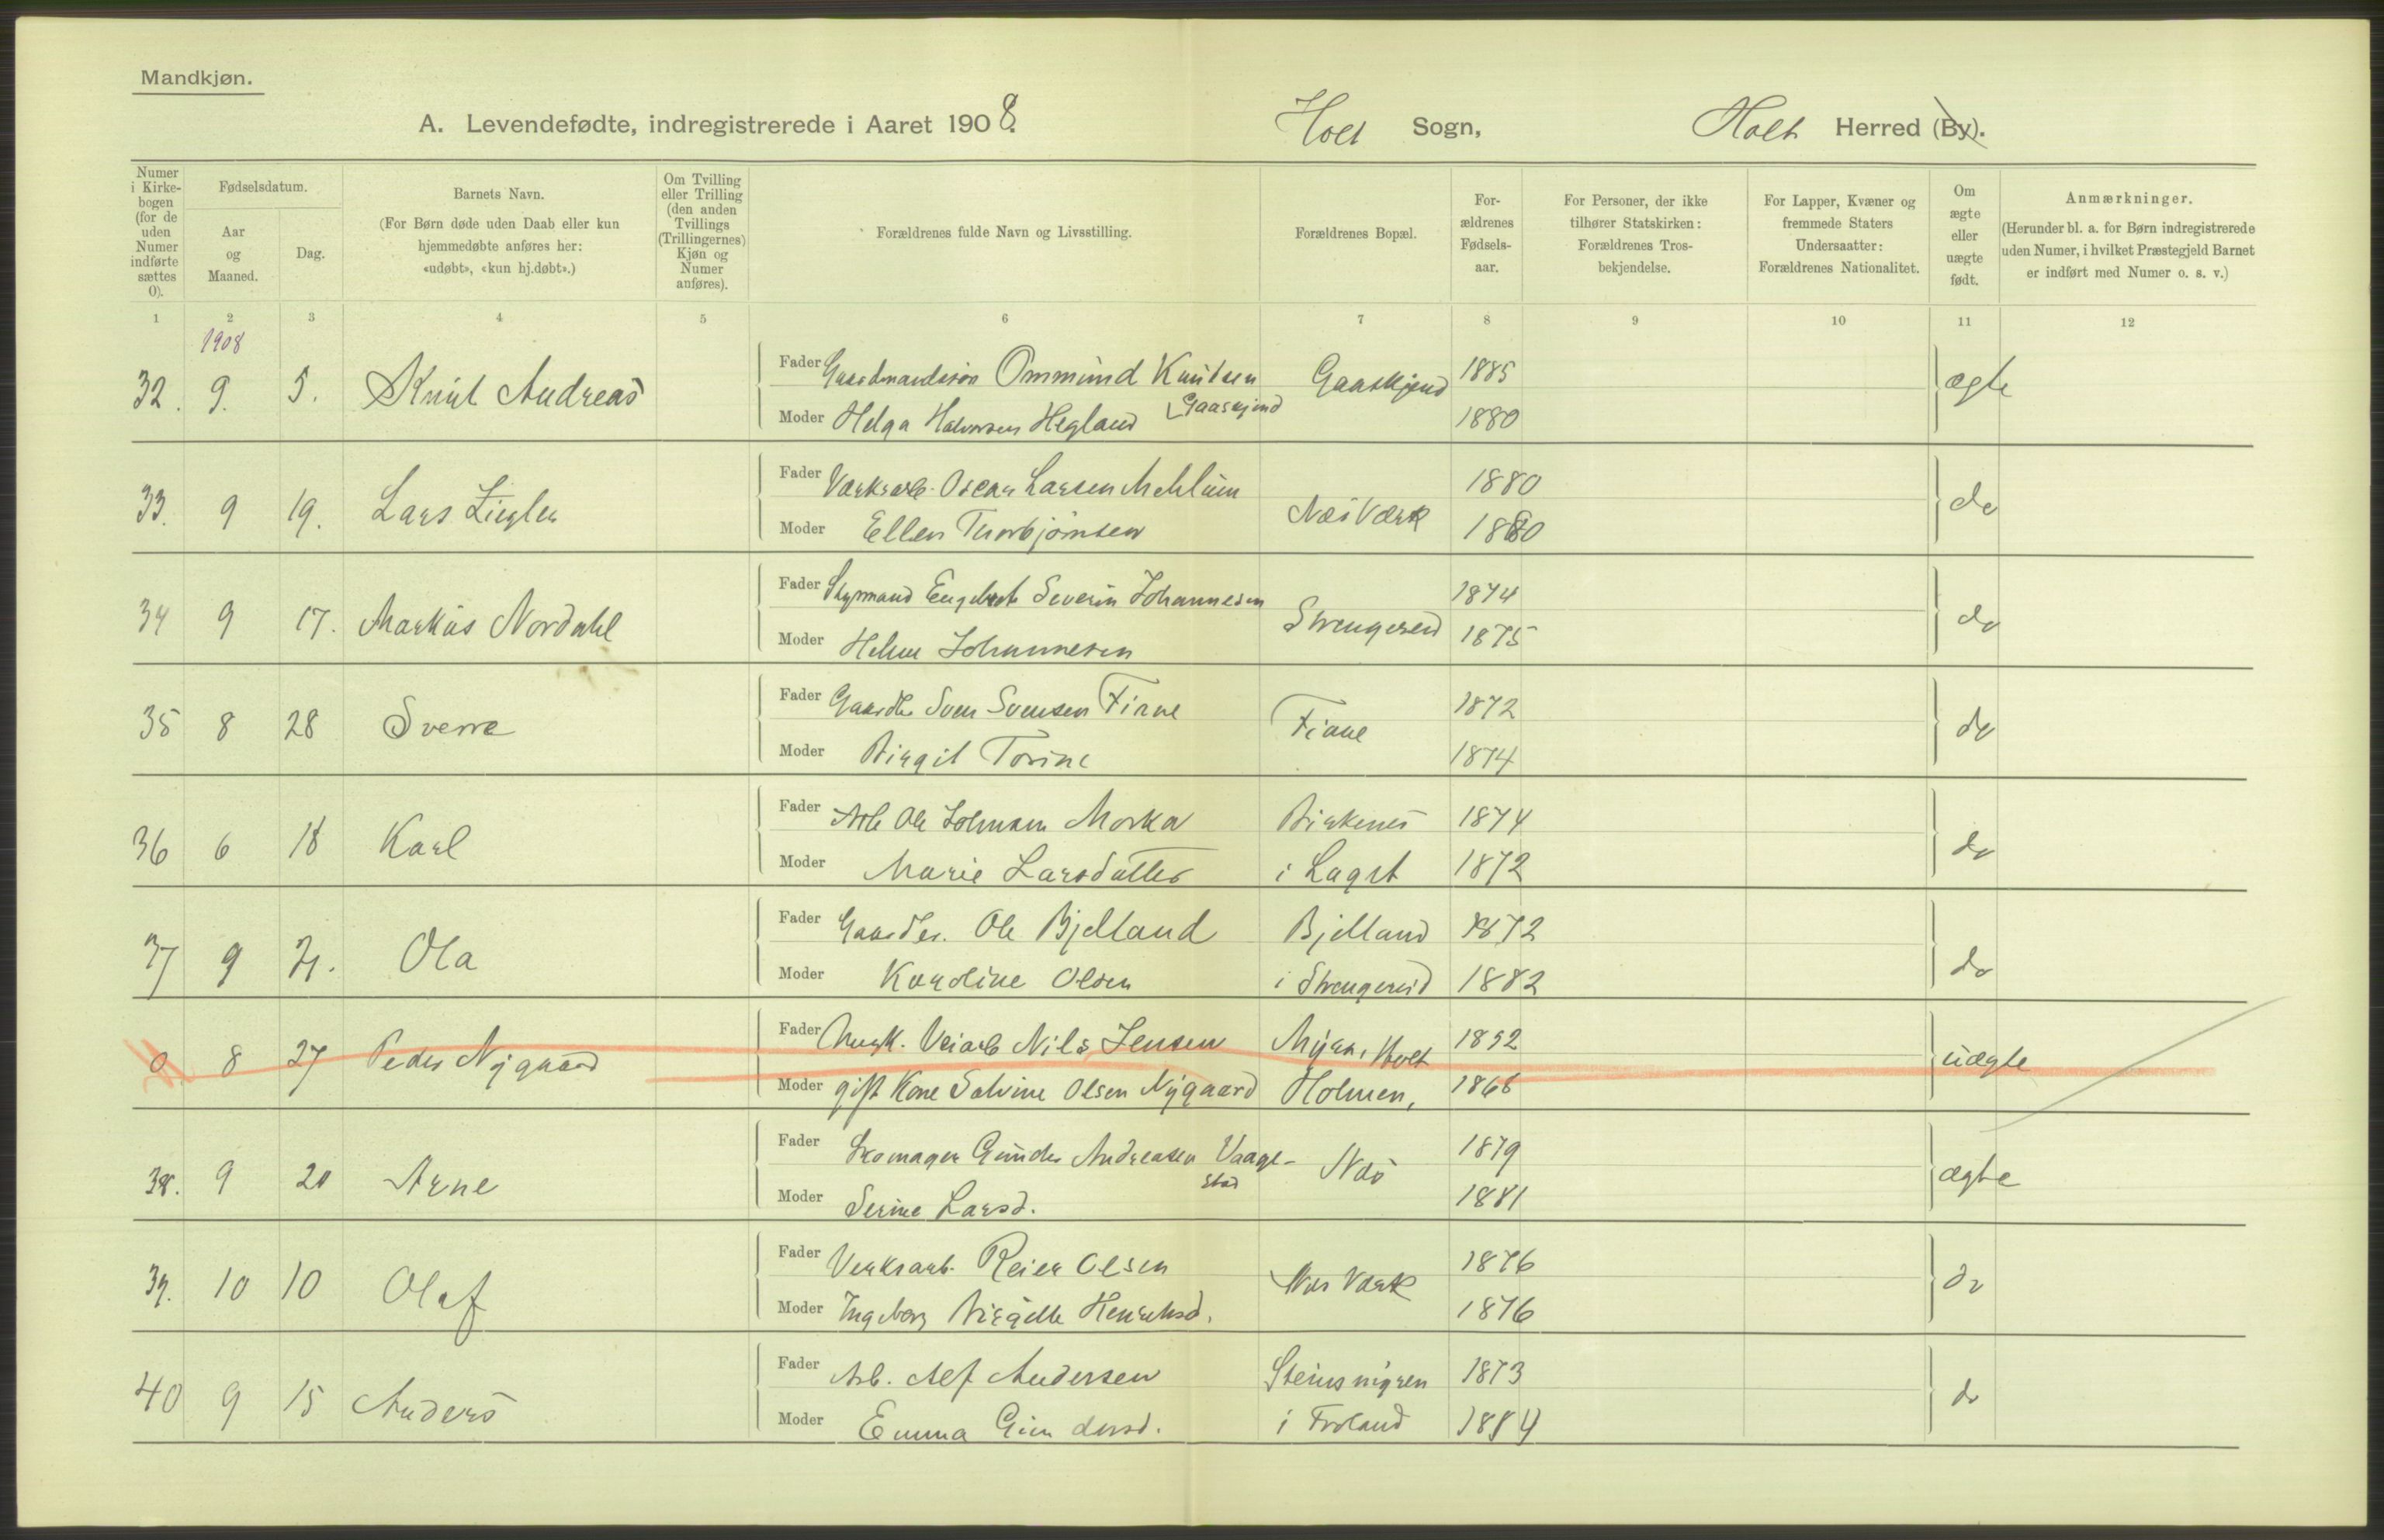 Mandkjøn.
A. Levendefødte, indregistrerede i Aaret 1908. Holt Sogn, Holt Herred (By).
Numer i Kirkebogen (for de uden Numer indførte sættes 0).
Fødselsdatum.
Aar og Maaned.
Dag.
Barnets Navn.
(For Børn døde uden Daab eller kun hjemmedøbte anføres her: «udøbt», «kun hj.døbt».)
Om Tvilling eller Trilling (den anden Tvillings (Trillingernes) Kjøn og Numer anføres).
Forældrenes fulde Navn og Livsstilling.
Forældrenes Bopæl.
Forældrenes Fødselsaar.
For Personer, der ikke tilhører Statskirken: Forældrenes Trosbekjendelse.
For Lapper, Kvæner og fremmede Staters Undersaatter: Forældrenes Nationalitet.
Om ægte eller uægte født.
Anmærkninger.
(Herunder bl. a. for Børn indregistrerede uden Numer, i hvilket Præstegjeld Barnet er indført med Numer o. s. v.)
1 2 3 4 5 6 7 8 9 10 11 12
1908
32. 9. 5. Knut Andreas Fader Gaardmandssøn Ommund Knutsen Gaaskjend Gaaskjend 1885 ægte
Moder Helga Halvorsen Hegland 1880
33. 9 19. Lars Ziegler Fader Værksarb. Oscar Larsen Mehlum Næs Værk 1880 do
Moder Ellen Thorbjørnsen 1880
34 9 17. Markus Nordahl Fader Styrmand Engebret Severin Johannesen Strengereid 1874 do
Moder Helene Johannesen 1875
35 8 28 Sverre Fader Gaardbr Sven Svensen Fiane Fiane 1872 do
Moder Birgit Torine 1874
36 6 18 Karl Fader Arb Ole Johnsen Morka Birkenes 1874 do
Moder Marie Larsdatter i Lagst 1872
37 9 21. Ola Fader Gaardbr. Ole Bjelland Bjelland 1872 do
Moder Karoline Olsen i Strengereid 1882
0 8 27 Peder Nygaard Fader Veiarb Nils Jensen Myra, Holt 1852 uægte
Moder gift Kone Salvine Olsen Nygaard Holmen, 1868
38. 9 20 Arne Fader Skomager Gunder Andreasen Vaagestad Næs 1879 ægte
Moder Serine Larsd. 1881
39. 10 10 Olaf Fader Verksarb. Reier Olsen Næs Værk 1876 do
Moder Ingeborg Birgitte Henriksd. 1876
40 9 15 Anders Fader Arb. Alf Andersen Steinsmyren 1873 do
Moder Emma Gundersd. i Froland 1884